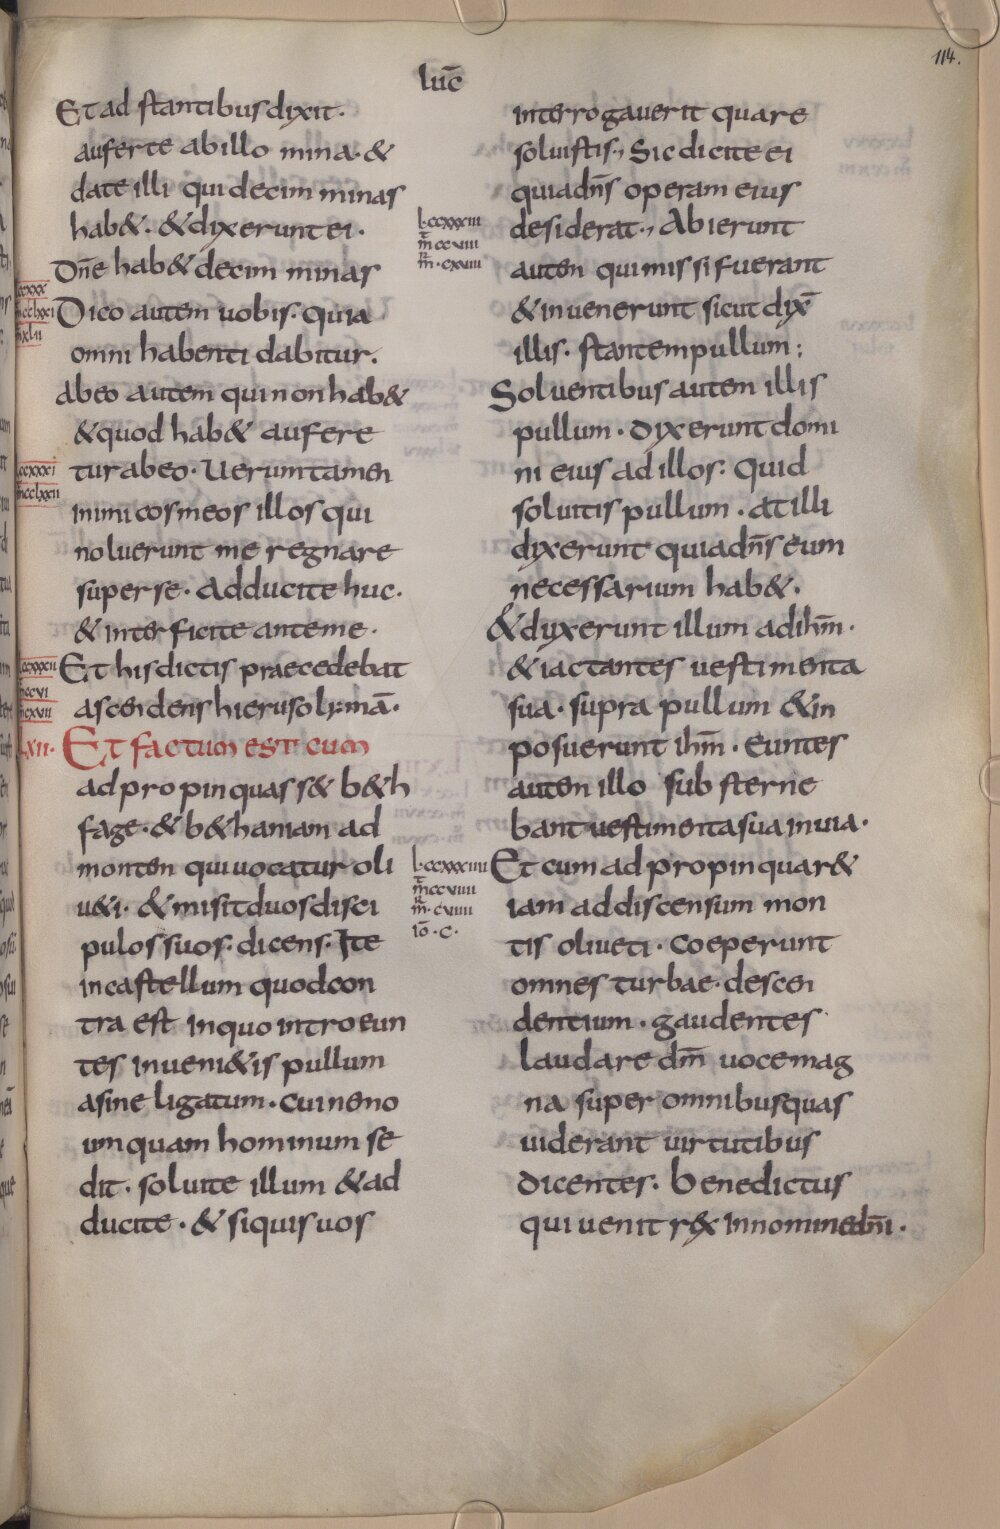 114.
luc̄
Et ad stantibus dixit.
auferte ab illo mina. &
date illi qui decim minas
hab&. & dixerunt ei.
Dn̄e hab& decim minas
Dico autem uobis. quia
omni habenti dabitur.
Abeo autem qui non hab&
& quod hab& aufere
tur abeo. Uerumtamen
inimicos meos illos qui
noluerunt me regnare
super se. adducite huc.
& interficite ante me.
Et his dictis praecedebat
ascendens hierusolymā.
lxii. Et factum est cum
ad propinquass& b&h
fage. & b&haniam ad
montem qui uocatur oli
u&i. & misit duos disci
pulos suos. dicens. Ite
in castellum quod con
tra est in quo introeun
tes inueni&is pullum
asine ligatum. cui nemo
umquam hominum se
dit. soluite illum & ad
ducite. & siquis uos
l. ccxxxiii
m̄ ccviii
m̄. cxviii
l. ccxxxiiii
m̄ ccviiii
m̄. cviiii
iō. c.
interrogauerit quare
soluistis, Sic dicite ei
quia dn̄s operam eius
desiderat., Abierunt
autem qui missi fuerant
& inuenerunt sicut dix̄
illis. stantem pullum:
Soluentibus autem illis
pullum. dixerunt domi
ni eius ad illos: Quid
soluitis pullum. at illi
dixerunt quia dn̄s eum
necessarium hab&.
& dyxerunt illum ad ihm̄.
& iactantes uestimenta
sua. supra pullum & in
posuerunt ihm̄. Euntes
autem illo sub sterne
bant uestimenta sua in uia.
Et cum ad propinquar&
iam ad discensum mon
tis oliueti. coeperunt
omnes turbae. descen
dentium. gaudentes
laudare dm̄ uoce mag
na super omnibus quas
uiderant uirtutibus
dicentes. benedictus
qui uenit r&x in nomine dn̄i.